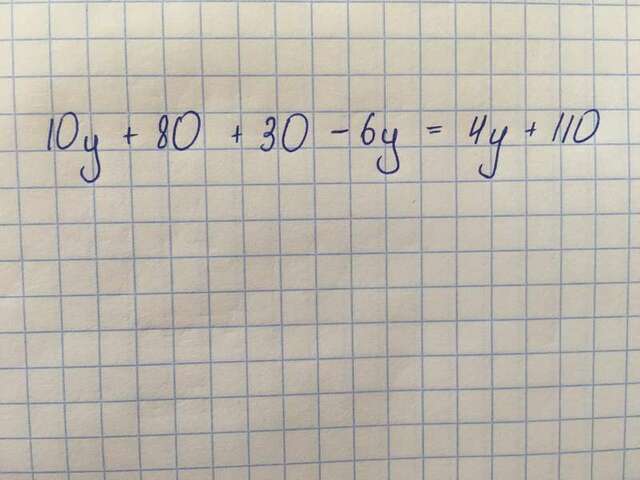 10y + 80 + 30 - 6y = 4y + 110